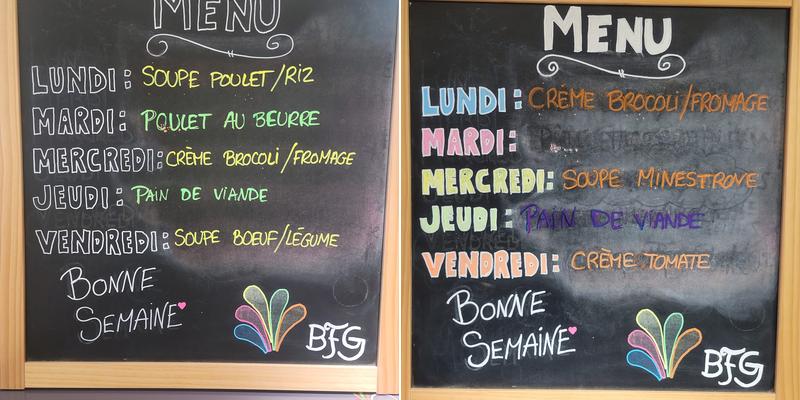 MENU
LUNDI: SOUPE POULET/RIZ
MARDI: POULET AU BEURRE
MERCREDI: CRÈME BROCOLI/FROMAGE
JEUDI: PAIN DE VIANDE
VENDREDI: SOUPE BOEUF/LÉGUME
BONNE
SEMAINE
BFG
MENU
LUNDI: CRÈME BROCOLI/FROMAGE
MARDI:
MERCREDI: SOUPE MINESTRONE
JEUDI: PAIN DE VIANDE
VENDREDI: CRÈME TOMATE
BONNE
SEMAINE
BFG